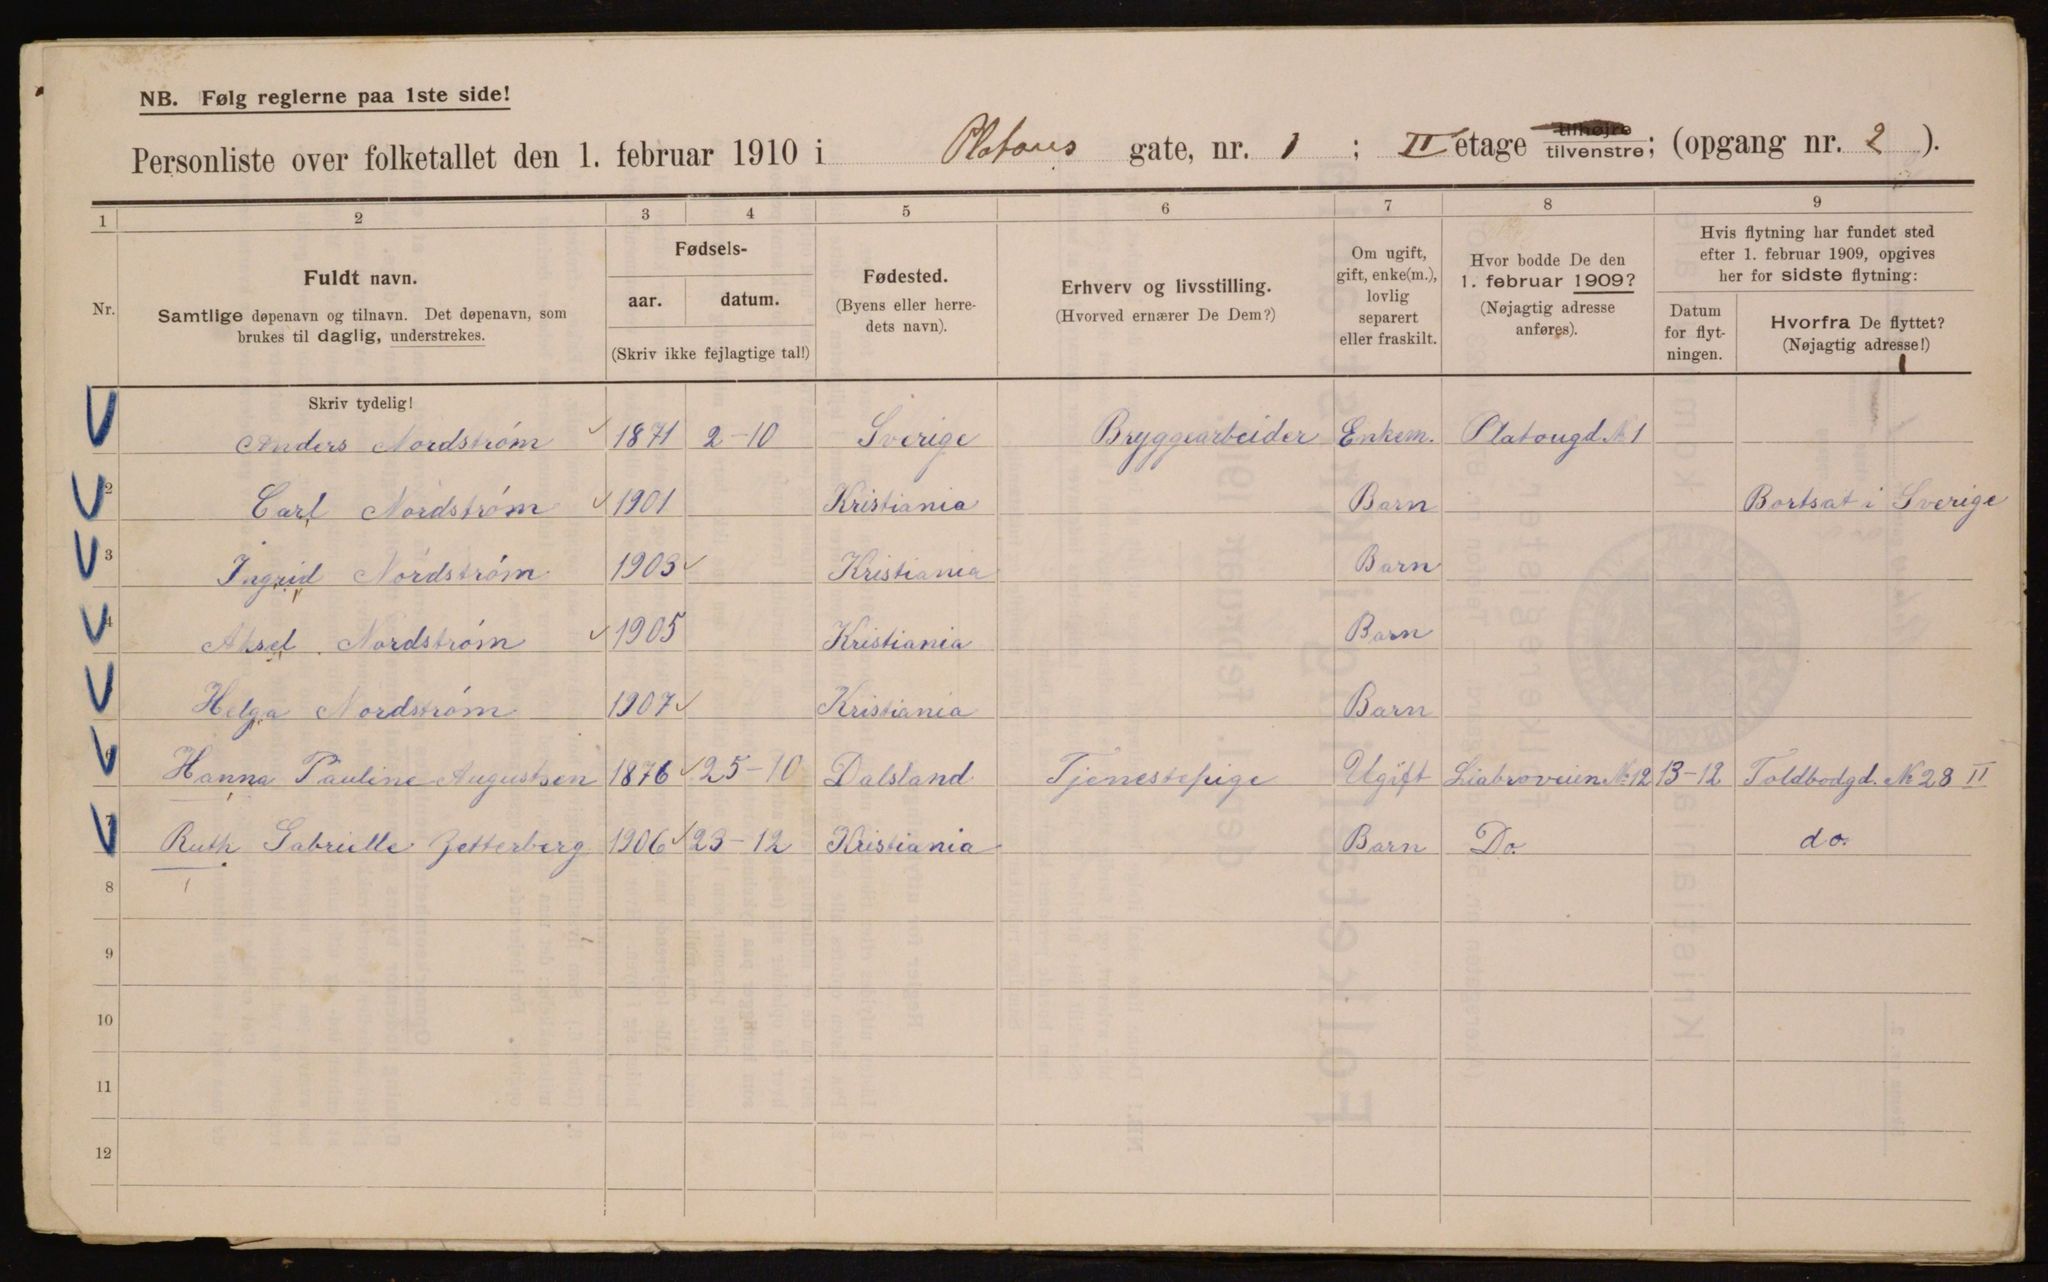 NB. Følg reglerne paa 1ste side!
Personliste over folketallet den 1. februar 1910 i Platous gate, nr. 1 ; II etage tilhøjre tilvenstre; (opgang nr. 2 ).
1 2 3 4 5 6 7 8 9
Nr.
Fuldt navn.
Samtlige døpenavn og tilnavn. Det døpenavn, som
brukes til daglig, understrekes.
Skriv tydelig!
Fødsels-
aar. datum.
(Skriv ikke fejlagtige tal!)
Fødested.
(Byens eller herre-
dets navn).
Erhverv og livsstilling.
(Hvorved ernærer De Dem?)
Om ugift,
gift, enke(m.),
lovlig
separert
eller fraskilt.
Hvor bodde De den
1. februar 1909?
(Nøjagtig adresse
anføres).
Hvis flytning har fundet sted
efter 1. februar 1909, opgives
her for sidste flytning:
Datum
for flyt-
ningen.
Hvorfra De flyttet?
(Nøjagtig adresse!)
Anders Nordström 1871 2-10 Sverige Bryggearbeider Enkem. Platougd. № 1
2 Carl Nordström 1901 Kristiania Barn Bortsat i Sverige
3 Ingrid Nordström 1903 Kristiania Barn
4 Aksel Nordström 1905 Kristiania Barn
Helga Nordström 1907 Kristiania Barn
6 Hanna Pauline Augustsen 1876 25-10 Dalsland Tjenestepige Ugift Liabroveien № 12 13-12 Toldbodgd. № 28 II
7 Ruth Gabrielle Zetterberg 1906 23-12 Kristiania Barn Do. do.
8
9
10
11
12